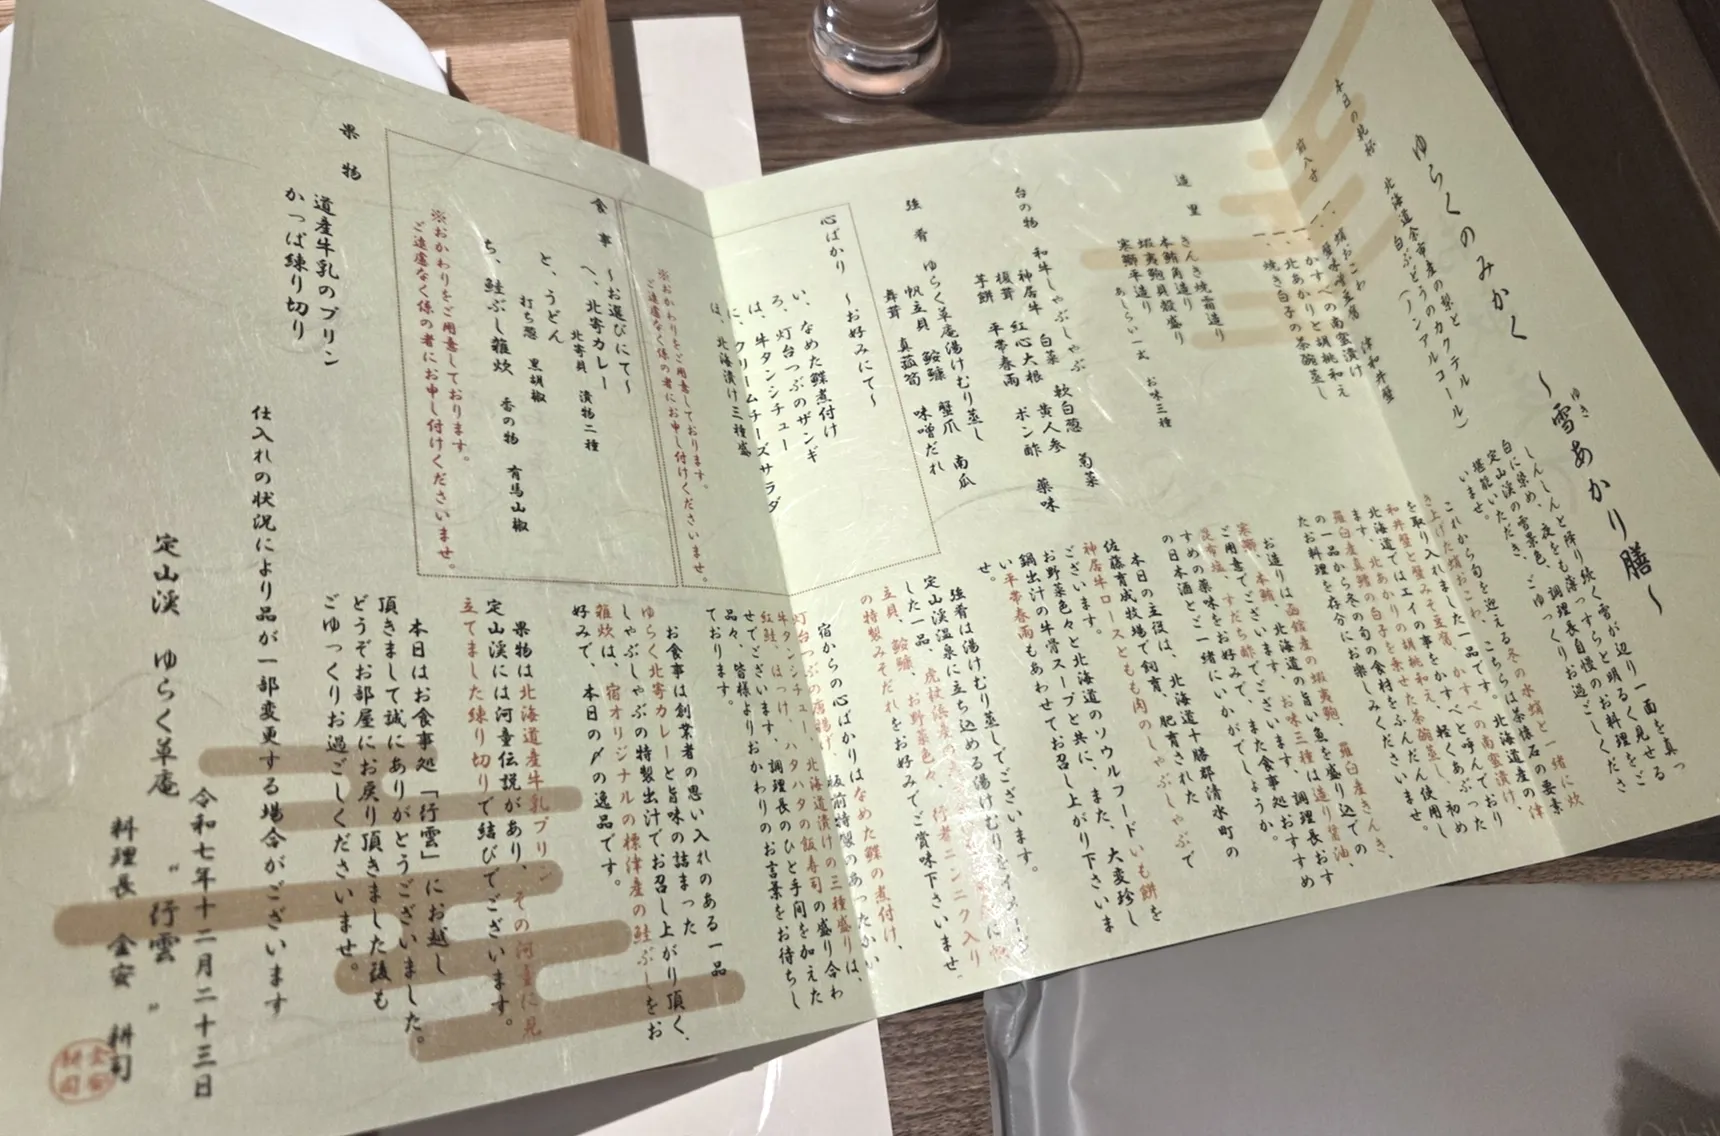 ゆらくのみかく
～雪あかり膳～
ゆき
しんしんと降り続く雪が辺り一面を真っ
白に染め、夜をも薄っすらと明るく見せる
定山渓の雪景色、調理長自慢のお料理をご
堪能いただき、ごゆっくりお過ごしくださ
いませ。
本日の乾杯
北海道余市産の梨と
白ぶどうのカクテル
（ノンアルコール）
前八寸
一、蛸おこわ 津和井蟹
一、蟹味噌豆腐
一、かすべの南蛮漬け
一、北あかりと胡桃和え
一、焼き白子の茶碗蒸し
これから旬を迎える冬の水蛸と一緒に炊
き上げた蛸おこわ、こちらは茶懐石の要素
を取り入れました一品です。北海道産の津
和井蟹と蟹みそ豆腐、かすべの南蛮漬け、
北海道ではエイの事をかすべと呼んでおり
ます。北あかりの胡桃和え、軽くあぶった
羅臼産真鱈の白子を乗せた茶碗蒸し、初め
の一品から冬の旬の食材をふんだん使用し
たお料理を存分にお楽しみくださいませ。
造里
きんき焼霜造り
本鮪角造り
蝦夷鮑貝殻盛り
寒鰤平造り
あしらい一式 お味三種
お造りは函館産の蝦夷鮑、羅臼産きんき、
寒鰤、本鮪、北海道の旨い魚を盛り込での
ご用意でございます。お味三種は造り醤油、
昆布塩、すだち酢でございます、調理長おす
すめの薬味をお好みで、また食事処おすすめ
の日本酒とご一緒にいかがでしょうか。
台の物
和牛しゃぶしゃぶ
神居牛 白菜 軟白葱 菊菜
榎茸 紅心大根 黄人参
芋餅 平帯春雨 ポン酢 薬味
本日の主役は、北海道十勝郡清水町の
佐藤育成牧場で飼育、肥育された
神居牛ロースともも肉のしゃぶしゃぶで
ございます。
お野菜色々と北海道のソウルフードいも餅を
鍋出汁の牛骨スープと共に、また、大変珍し
い平帯春雨もあわせてお召し上がり下さいま
せ。
強肴
ゆらく草庵湯けむり蒸し
帆立貝 鮟鱇 蟹爪 南瓜
舞茸 真菰筍 味噌だれ
強肴は湯けむり蒸しでございます。
定山渓温泉に立ち込める湯けむりをイメージ
した一品、虎杖浜産の
立貝、鮟鱇、お野菜色々、行者ニンニク入り
の特製みそだれをお好みでご賞味下さいませ。
心ばかり ～お好みにて～
い、なめた鰈煮付け
ろ、灯台つぶのザンギ
は、牛タンシチュー
に、クリームチーズサラダ
ほ、北海漬け三種盛
※おかわりをご用意しております。
ご遠慮なく係の者にお申し付けくださいませ。
宿からの心ばかりはなめた鰈の煮付け、
灯台つぶの唐揚げ、板前特製のあったかい
牛タンシチュー、北海道漬けの三種盛りは、
紅鮭、ほっけ、ハタハタの飯寿司の盛り合わ
せでございます、調理長のひと手間を加えた
品々、皆様よりおかわりのお言葉をお待ちし
ております。
食事 ～お選びにて～
へ、北寄カレー
北寄貝 漬物二種
と、うどん
打ち葱 黒胡椒
ち、鮭ぶし雑炊 香の物 有馬山椒
※おかわりをご用意しております。
ご遠慮なく係の者にお申し付けくださいませ。
お食事は創業者の思い入れのある一品
ゆらく北寄カレーと旨味の詰まった
しゃぶしゃぶの特製出汁でお召し上がり頂く、
雑炊は、宿オリジナルの標津産の鮭ぶしをお
好みで、本日の〆の逸品です。
果物
道産牛乳のプリン
かっぱ練り切り
果物は北海道産牛乳プリン
定山渓には河童伝説があり、その河童に見
立てました練り切りで結びでございます。
本日はお食事処「行雲」にお越し
頂きまして誠にありがとうございました。
どうぞお部屋にお戻り頂きました後も
ごゆっくりお過ごしくださいませ。
仕入れの状況により品が一部変更する場合がございます
令和七年十二月二十三日
定山渓 ゆらく草庵 "行雲"
料理長 金安 耕司
金安
耕司